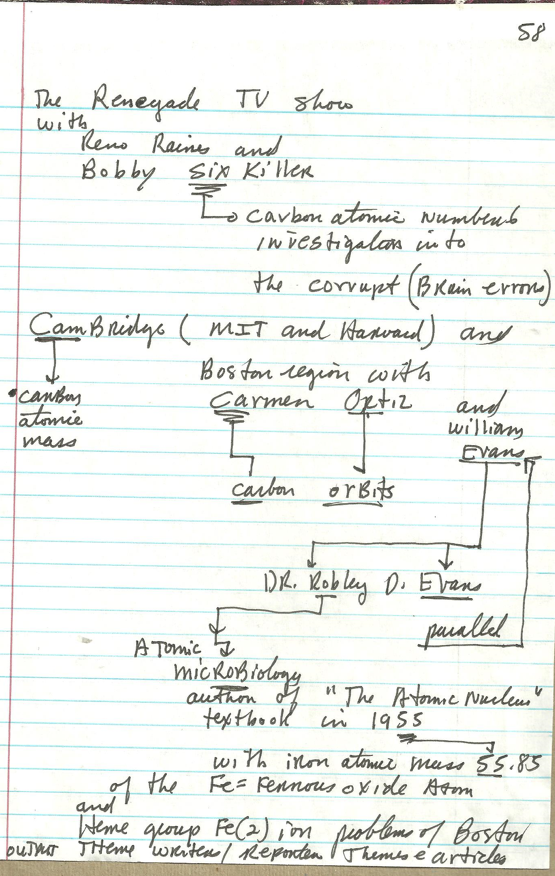 58
The Renegade TV show
with
Reno Raines and
Bobby Six Killer
Carbon atomic number 6
investigators into
the corrupt (Brain errors)
CamBridge (MIT and Harvard) and
Boston region with
Carmen Ortiz and
william
Evans
carbon
atomic
mass
carbon orBits
DR. Robley D. Evans
parallel
ATomic
micROBiology
author of "The Atomic Nucleus"
textbook in 1955
with iron atomic mass 55.85
of the Fe = Ferrous oxide Atom
and
Heme group Fe(2) ion problems of Boston
output THeme writers/Reporter Themes e articles